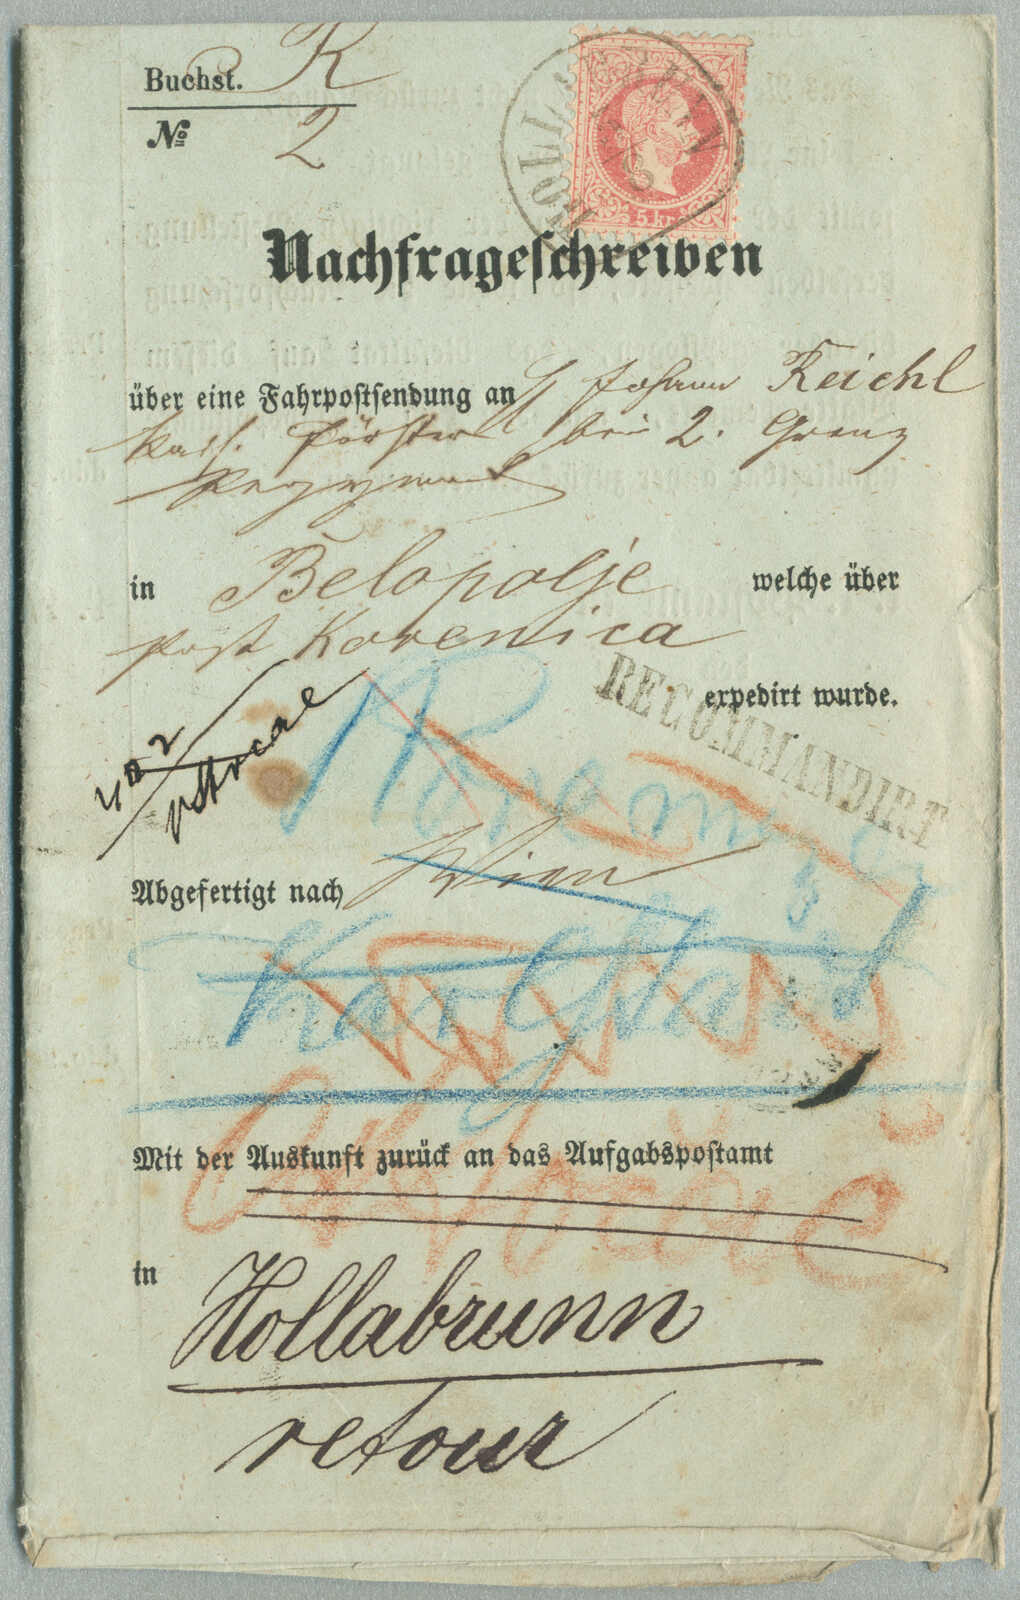 Buchst. R
№ 2
HOLLABRUNN
5 kr
Nachfrageschreiben
über eine Fahrpostsendung an Johann Reichl
kais. Förster bei 2. Grenz
Regiment
in Belopolje welche über
post Korenica
expedirt wurde.
RECOMMANDIRT
Korenica
Abgefertigt nach Wien
Karlstadt
Mit der Auskunft zurück an das Aufgabspostamt
in Hollabrunn
retour